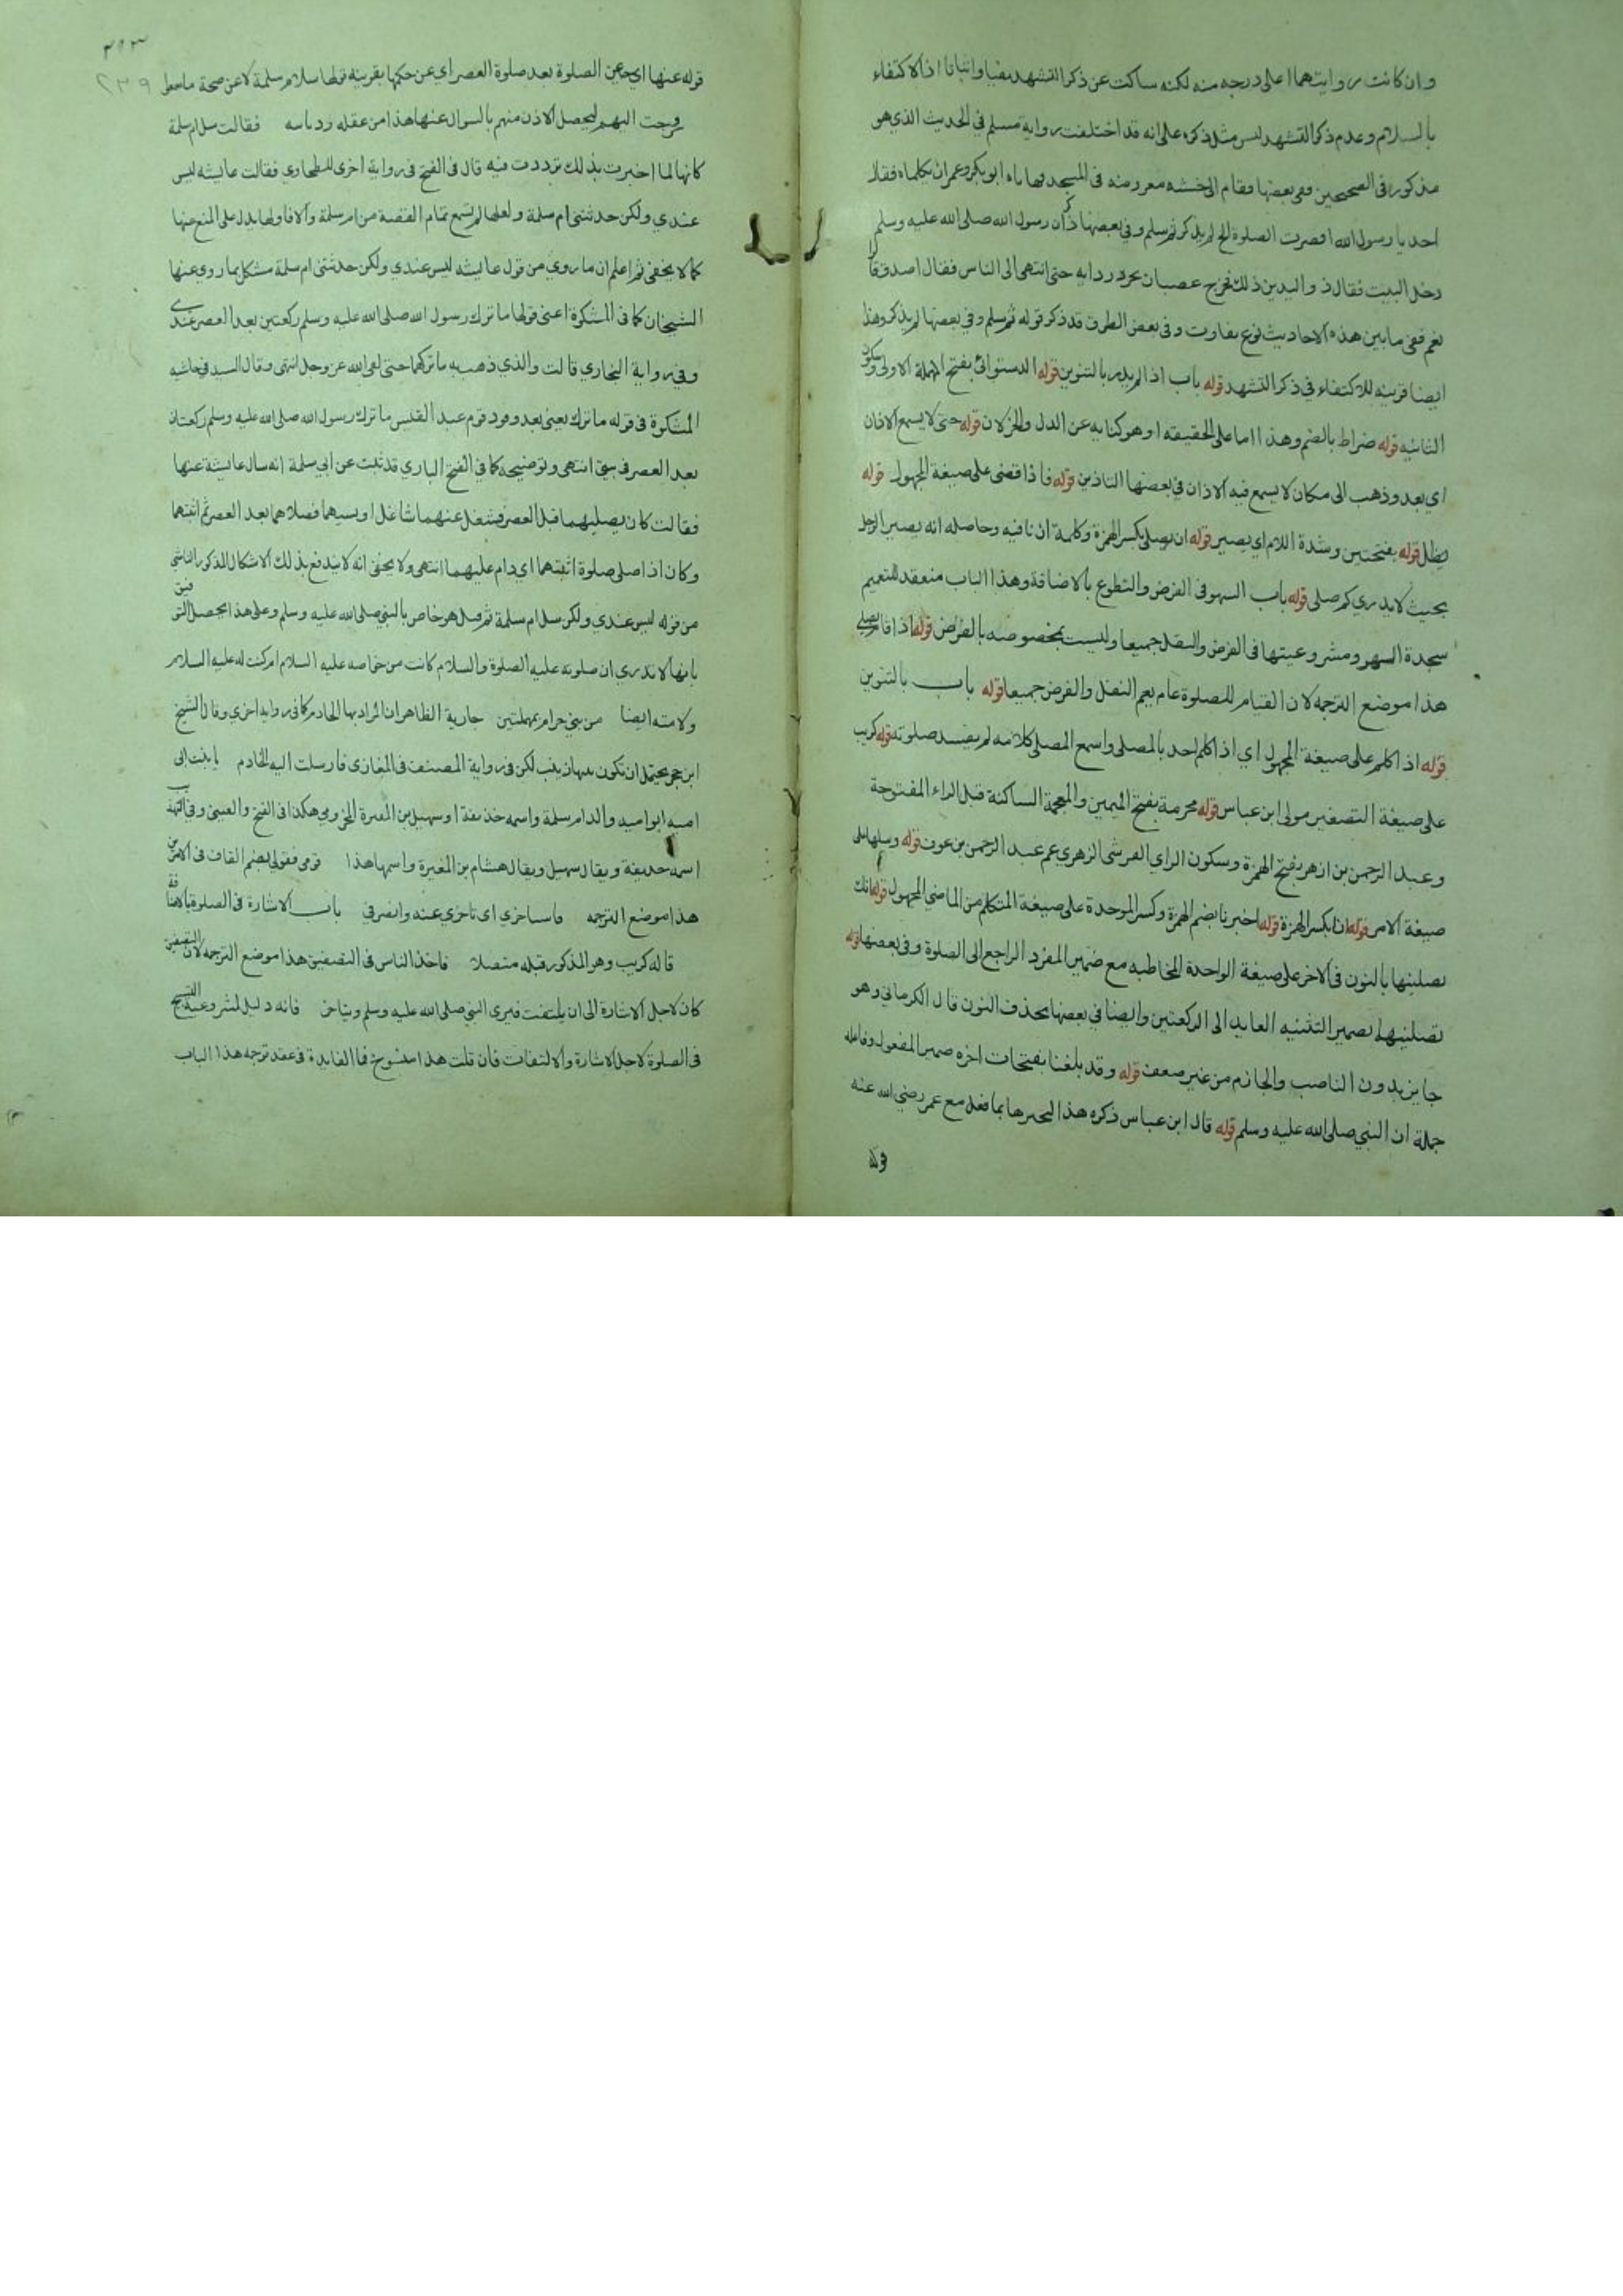 وان كانت روايتهما اعلى درجه منه لكنه ساكت عن ذكر التشهد نفيا واثباتا اذ الاكتفاء
بالسلام وعدم ذكر التشهد ليس مثل ذكره على انه قد اختلفت رواية مسلم في الحديث الذي هو
مذكور في الصحيحين ففي بعضها فقام الى خشبه معروضه في المسجد فهاباه ابو بكر وعمر ان يكلماه فقال
احد يا رسول الله اقصرت الصلوة الخ لم يذكر ثم سلم وفي بعضها ذكر ان رسول الله صلى الله عليه وسلم
دخل البيت فقال ذو اليدين ذلك فخرج غضبان يجر ردايه حتى انتهى الى الناس فقال اصدق
نعم ففي ما بين هذه الاحاديث نوع تفاوت وفي بعض الطرق قد ذكر قوله ثم سلم وفي بعضها لم يذكر وهذا
ايضا قرينه للاكتفاء في ذكر التشهد قوله باب اذا لم يدر بالتنوين قوله الدستوائي بفتح المهملة الاولى وسكون
الثانيه قوله ضراط بالضم وهذا اما على الحقيقه او هو كنايه عن الذل والخزلان قوله حتى لا يسمع الاذان
اي بعد وذهب الى مكان لا يسمع فيه الاذان في بعضها التاذين قوله فاذا قضى على صيغة المجهول قوله
يظل قوله بفتحتين وشدة اللام اي يصير قوله ان يصلي بكسر الهمزة وكلمة ان نافيه وحاصله انه يصير الرجل
بحيث لا يدري كم صلى قوله باب السهو في الفرض والتطوع بالاضافة وهذا الباب منعقد لتعميم
سجدة السهو ومشروعيتها في الفرض والنفل جميعا وليست بمخصوصه بالفرض قوله اذا قام يصلي
هذا موضع الترجمه لان القيام للصلوة عام يعم النفل والفرض جميعا قوله باب بالتنوين
قوله اذا كلم على صيغة المجهول اي اذا كلم احد بالمصلى واسمع المصلى كلامه لم يفسد صلوته قوله كريب
على صيغة التصغير مولى ابن عباس قوله مخرمة بفتح الميمين والمعجمة الساكنة قبل الراء المفتوحة
وعبد الرحمن بن ازهر بفتح الهمزة وسكون الزاي القرشي الزهري عم عبد الرحمن بن عوف قوله وسلها على
صيغة الامر قوله انا بكسر الهمزة قوله اخبرنا بضم الهمزة وكسر الموحدة على صيغة المتكلم من الماضي المجهول قوله انك
تصلينها بالنون في الاخر على صيغة الواحدة المخاطبه مع ضمير المفرد الراجع الى الصلوة وفي بعضها قوله
تصلينهما بضمير التثنيه العايد الى الركعتين وايضا في بعضها بحذف النون قال الكرماني وهو
جايز بدون الناصب والجازم من غير ضعف قوله وقد بلغنا بفتحات اخره ضمير المفعول وفاعله
جملة ان النبي صلى الله عليه وسلم قوله قال ابن عباس ذكره هذا ليخبرها بما فعل مع عمر رضي الله عنه
قوله
٣١٣
٢٣٩
قوله عنها اي عن الصلوة بعد صلوة العصر اي عن حكمها بقرينة قولها سل ام سلمة لا عن صحة ما جعل
فرجت اليهم ليحصل الاذن منهم بالسوال عنها هذا من عقله ودبابه فقالت سل ام سلمة
كانها لما اخبرت بذلك ترددت فيه قال في الفتح في رواية اخرى للطحاوي فقالت عايشه ليس
عندي ولكن حدثتني ام سلمة ولعلها لم تسمع تمام القصة من ام سلمة والا فاولها يدل على المنع عنها
كما لا يخفى ثم اعلم ان ما روي من قول عايشه ليس عندي ولكن حدثتني ام سلمة مشكل بما روي عنها
الشيخان كما في المشكوة اعني قولها ما ترك رسول الله صلى الله عليه وسلم ركعتين بعد العصر عندي
وفي رواية البخاري قالت والذي ذهب به ما تركهما حتى لقي الله عز وجل انتهى وقال السيد في حاشيه
المشكوة في قوله ما ترك يعني بعد وفود قوم عبد القيس ما ترك رسول الله صلى الله عليه وسلم ركعتان
بعد العصر في بيتي انتهى وتوضيحه كما في الفتح الباري قد ثبت عن ابي سلمة انه سال عايشة عنها
فقالت كان يصليهما قبل العصر فشغل عنهما شاغل او نسيهما فصلاهما بعد العصر ثم اثبتهما
وكان اذا صلى صلوة اثبتها اي دام عليهما انتهى ولا يخفى انه لا يندفع بذلك الاشكال المذكور الناشي
من قوله ليس عندي ولكن سل ام سلمة ثم قيل هو خاص بالنبي صلى الله عليه وسلم وعلى هذا يحصل التوفيق
بانها لا تدري ان صلوته عليه الصلوة والسلام كانت من خواصه عليه السلام ام ركنت له عليه السلام
ولامته ايضا من بني حرام بمهملتين جارية الظاهر ان المراد بها الخادم كما في رواية اخرى وقال الشيخ
ابن حجر يحتمل ان تكون بنها زينب لكن في رواية المصنف في المغازي فارسلت اليه الخادم يا بنت ابي
اميه ابو اميه والد ام سلمة واسمه حذيفة او سهيل بن المغيرة المخزومي هكذا في الفتح والعيني وفي التهذيب
اسمه حذيفة ويقال سهيل ويقال هشام بن المغيرة واسمها هذا قومي فقولي بضم القاف في الامرين
هذا موضع الترجمه فاستاخري اي تاخري عنه وانصرفي باب الاشارة في الصلوة بالاضافة
قاله كريب وهو المذكور قبله متصلا فاخذ الناس في التصفيق هذا موضع الترجمه لان التصفيق
كان لاجل الاشارة الى ان يلتفت فيرى النبي صلى الله عليه وسلم ويتاخر فانه دليل لمشروعية التسبيح
في الصلوة لاجل الاشارة والالتفات فان قلت هذا منسوخ فما الفايدة في عقد ترجمه هذا الباب